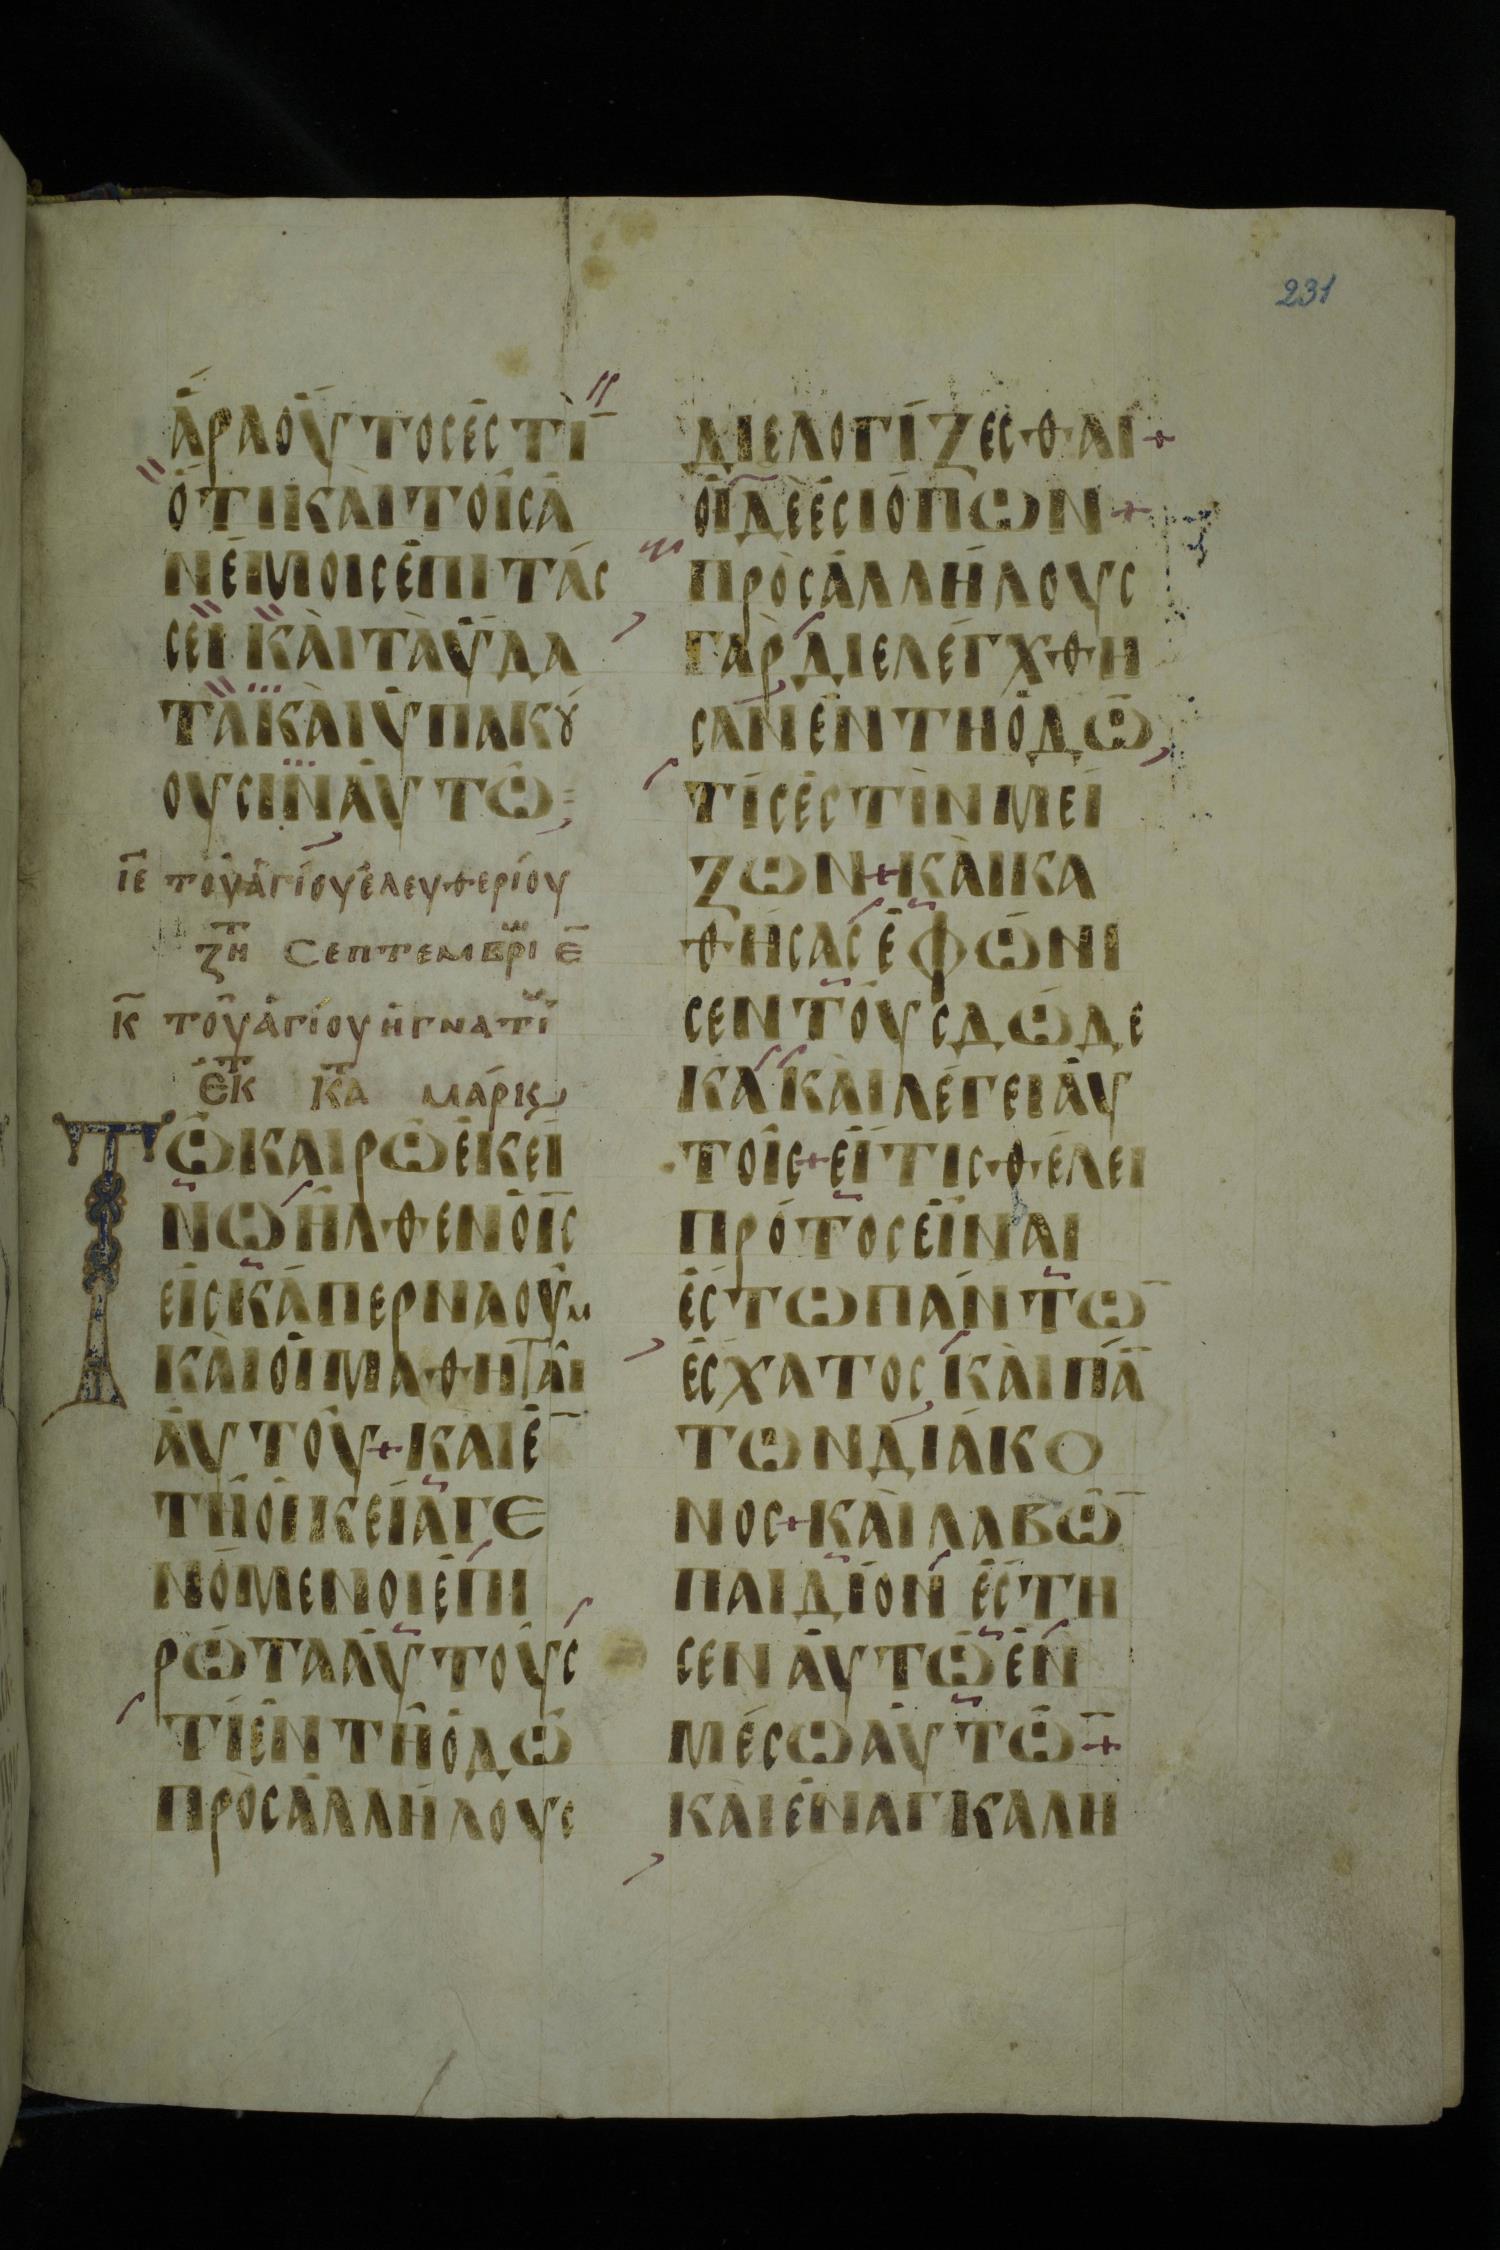 231
ἄρα οὗτος ἐστὶ̅
ὅτι καὶ τοῖς ἀ
νέμοις ἐπιτάσ
σει καὶ τὰ ὕδα
τα καὶ ὑπακȣ́
ουσιν αὐτῶ
ιε τοῦ ἁγίου ἐλευθερίου
ζητ σεπτεμβρι ε
κ τοῦ ἁγίου ἡγνατι
ἐκτ κτα μάρκȣ
Τῶ καιρῶ ἐκεί
νω ἦλθεν ὁ ις
εἰς καπερναοῦμ
καὶ οἱ μαθηταὶ
αὐτοῦ + και ἐ̅
τῆ οἰκεία γε
νόμενοι ἐπι
ρώτα αὐτούς
τί ἐν τῆ ὁδῶ
πρὸς ἀλλήλους
διελογίζεσθαι +
οἱ δὲ ἐσιόπων +
πρὸς ἀλλήλους
γὰρ διελέγχθη
σαν ἐν τη ὁδῶ
τίς ἐστὶν μεί
ζων + καὶ κα
θήσας ἐφώνι
σεν τοὺς δώδε
κα καὶ λέγει αὐ
τοῖς + εἴ τις θέλει
πρότος εἶναι
ἔστω πάντω̅
ἔσχατος καὶ πά̅
των διάκο
νος + καὶ λαβὼ̅
παιδίον ἔστη
σεν αὐτῶ ἐν
μέσω αὐτῶ̅ +
καὶ ἐναγκαλη